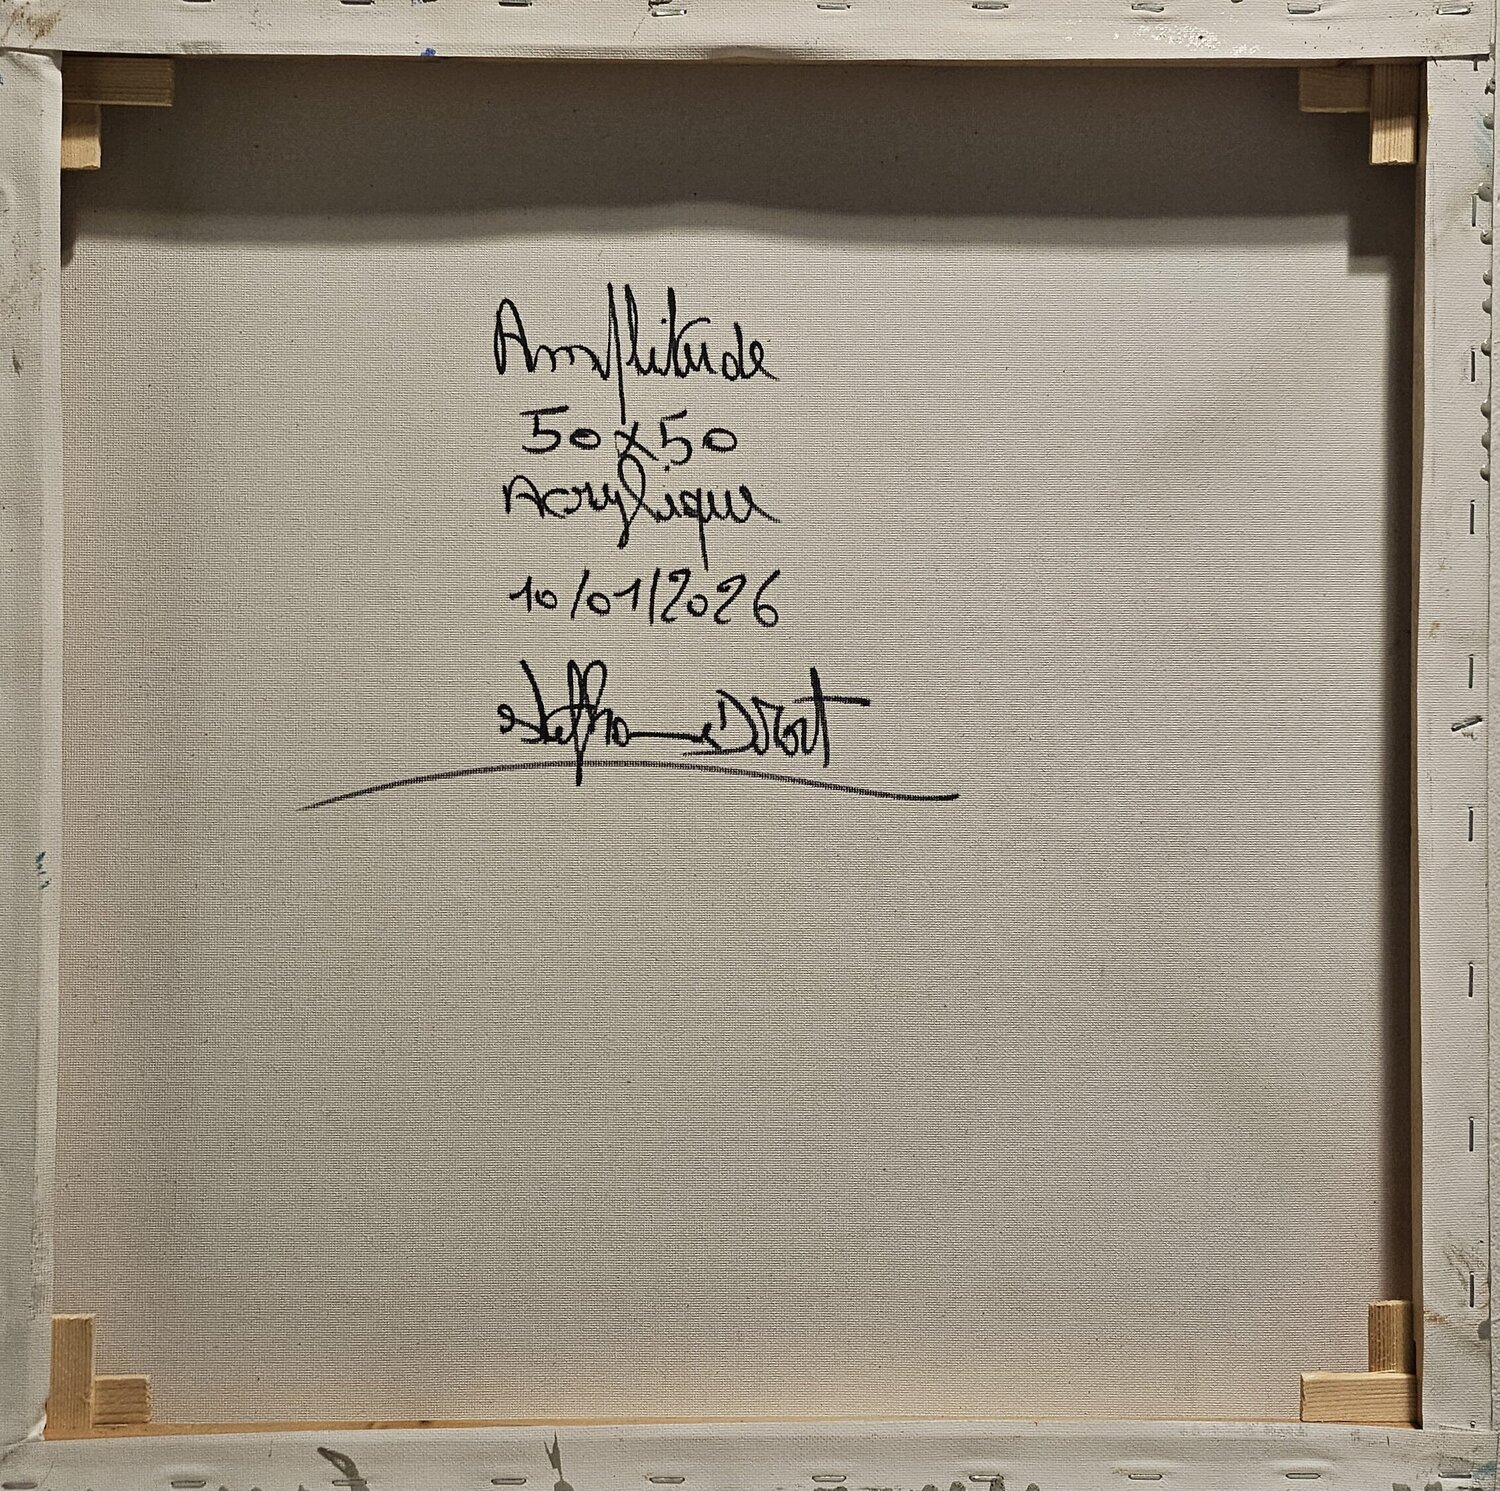 Amplitude
50x50
Acrylique
10/01/2026
Stephane